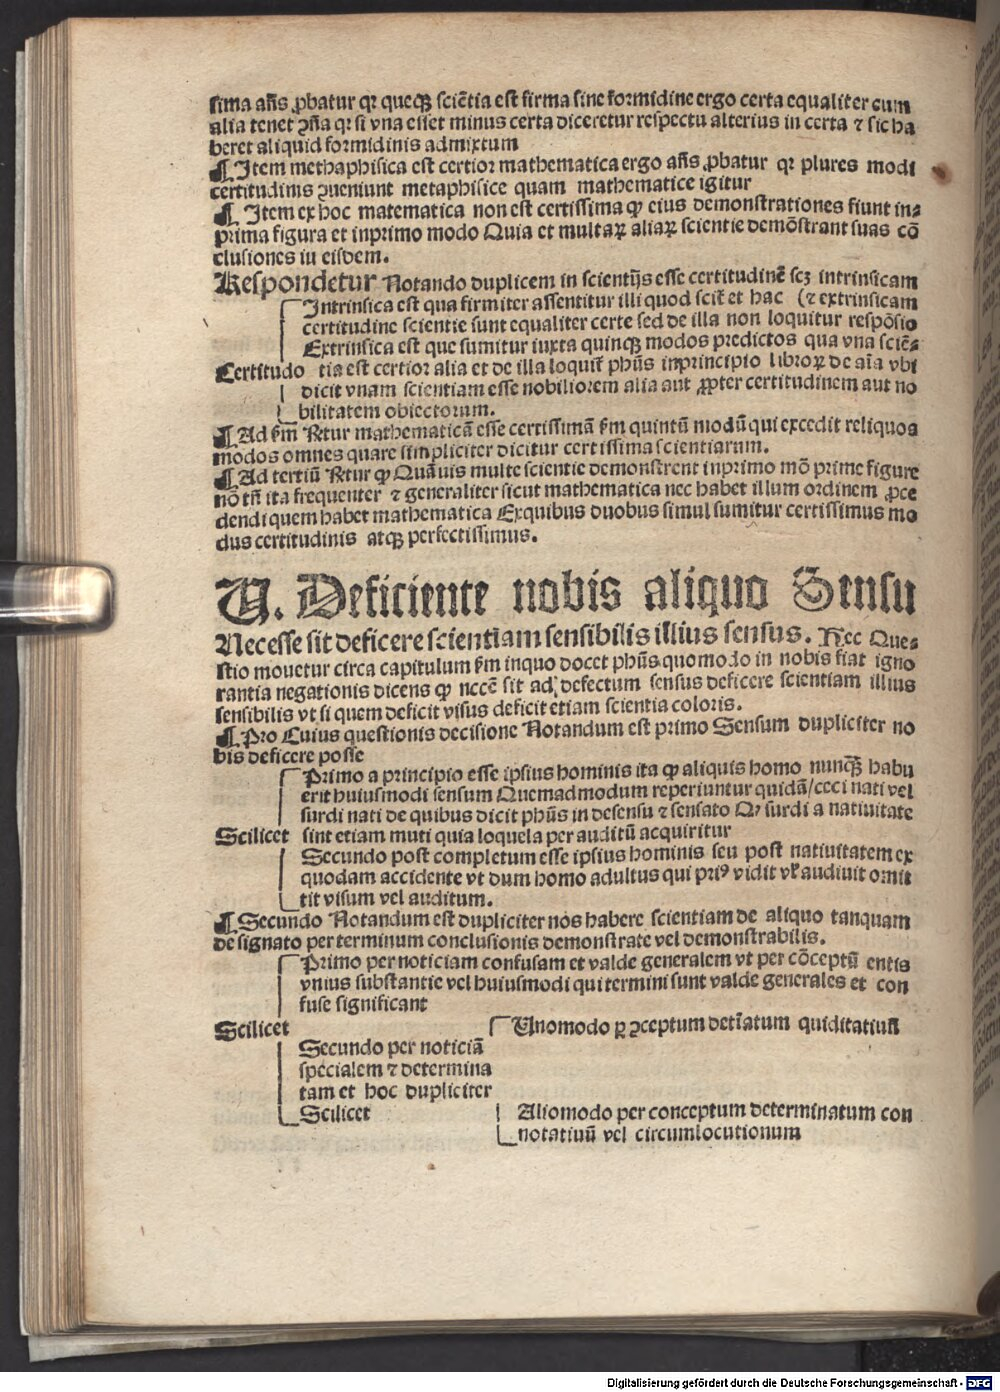 sima añs ꝓbatur qꝛ queqꝫ sciẽtia est firma sine formidine ergo certa equaliter cum
alia tenet ꝯña qꝛ si vna esset minus certa diceretur respectu alterius in certa ⁊ sic ha
beret aliquid formidinis admixtum
¶ Item methaphisica est certior mathematica ergo añs ꝓbatur qꝛ plures modi
certitudinis ꝯueniunt metaphisice quam mathematice igitur
¶ Item ex hoc matematica non est certissima ꝙ eius demonstrationes fiunt in⸗
prima figura et inprimo modo Quia et multaꝝ aliaꝝ scientie demõstrant suas cõ
clusiones in eisdem.
Respondetur Notando duplicem in scientijs esse certitudinẽ scꝫ intrinsicam
Intrinsica est qua firmiter assentitur illi quod scit̃ et hac (⁊ extrinsicam
certitudine scientie sunt equaliter certe sed de illa non loquitur respõsio
Extrinsica est que sumitur iuxta quinqꝫ modos predictos qua vna sciẽ⸗
Certitudo tia est certior alia et de illa loquit̃ phũs inprincipio libroꝝ de aĩa vbi
dicit vnam scientiam esse nobiliorem alia aut ꝓpter certitudinem aut no
bilitatem obiectorum.
¶ Ad s̃m R̃tur mathematicã esse certissimã s̃m quintũ modũ qui excedit reliquos
modos omnes quare simpliciter dicitur certissima scientiarum.
¶ Ad tertiũ R̃tur ꝙ Quãuis multe scientie demonstrent inprimo mõ prime figure
nõ tñ ita frequenter ⁊ generaliter sicut mathematica nec habet illum ordinem ꝓce
dendi quem habet mathematica Exquibus duobus simul sumitur certissimus mo
dus certitudinis atqꝫ perfectissimus.
V. Deficiente nobis aliquo Sensu
Necesse sit deficere scientiam sensibilis illius sensus. Hec Que⸗
stio mouetur circa capitulum s̃m inquo docet phũs quomodo in nobis fiat igno
rantia negationis dicens ꝙ nccẽ sit ad defectum sensus deficere scientiam illius
sensibilis vt si quem deficit visus deficit etiam scientia coloris.
¶ Pro Cuius questionis decisione Notandum est primo Sensum dupliciter no
bis deficere posse
Primo a principio esse ipsius hominis ita ꝙ aliquis homo nunqꝫ habu
erit huiusmodi sensum Quemadmodum reperiuntur quidã/ceci nati vel
surdi nati de quibus dicit phũs in desensu ⁊ sensato Qꝛ surdi a natiuitate
Scilicet sint etiam muti quia loquela per auditũ acquiritur
Secundo post completum esse ipsius hominis seu post natiuitatem ex
quodam accidente vt dum homo adultus qui priꝰ vidit vl̃ audiuit omit
tit visum vel auditum.
¶ Secundo Notandum est dupliciter nos habere scientiam de aliquo tanquam
de signato per terminum conclusionis demonstrate vel demonstrabilis.
Primo per noticiam confusam et valde generalem vt per cõceptũ entis
vnius substantie vel huiusmodi qui termini sunt valde generales et con
fuse significant
Scilicet Unomodo ꝑ ꝯceptum detĩatum quiditatiuũ
Secundo per noticiã
specialem ⁊ determina
tam et hoc dupliciter
Scilicet Aliomodo per conceptum determinatum con
notatiuũ vel circumlocutionum
Digitalisierung gefördert durch die Deutsche Forschungsgemeinschaft - DFG